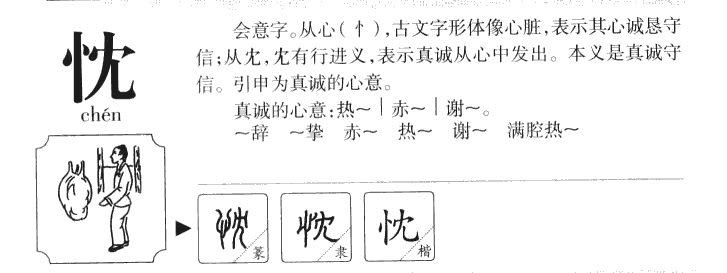 忱
chén
会意字。从心(忄),古文字形体像心脏,表示其心诚恳守
信;从冘,冘有行进义,表示真诚从心中发出。本义是真诚守
信。引申为真诚的心意。
真诚的心意:热～|赤～|谢～。
～辞 ～挚 赤～ 热～ 谢～ 满腔热～
忱 篆
忱 隶
忱 楷